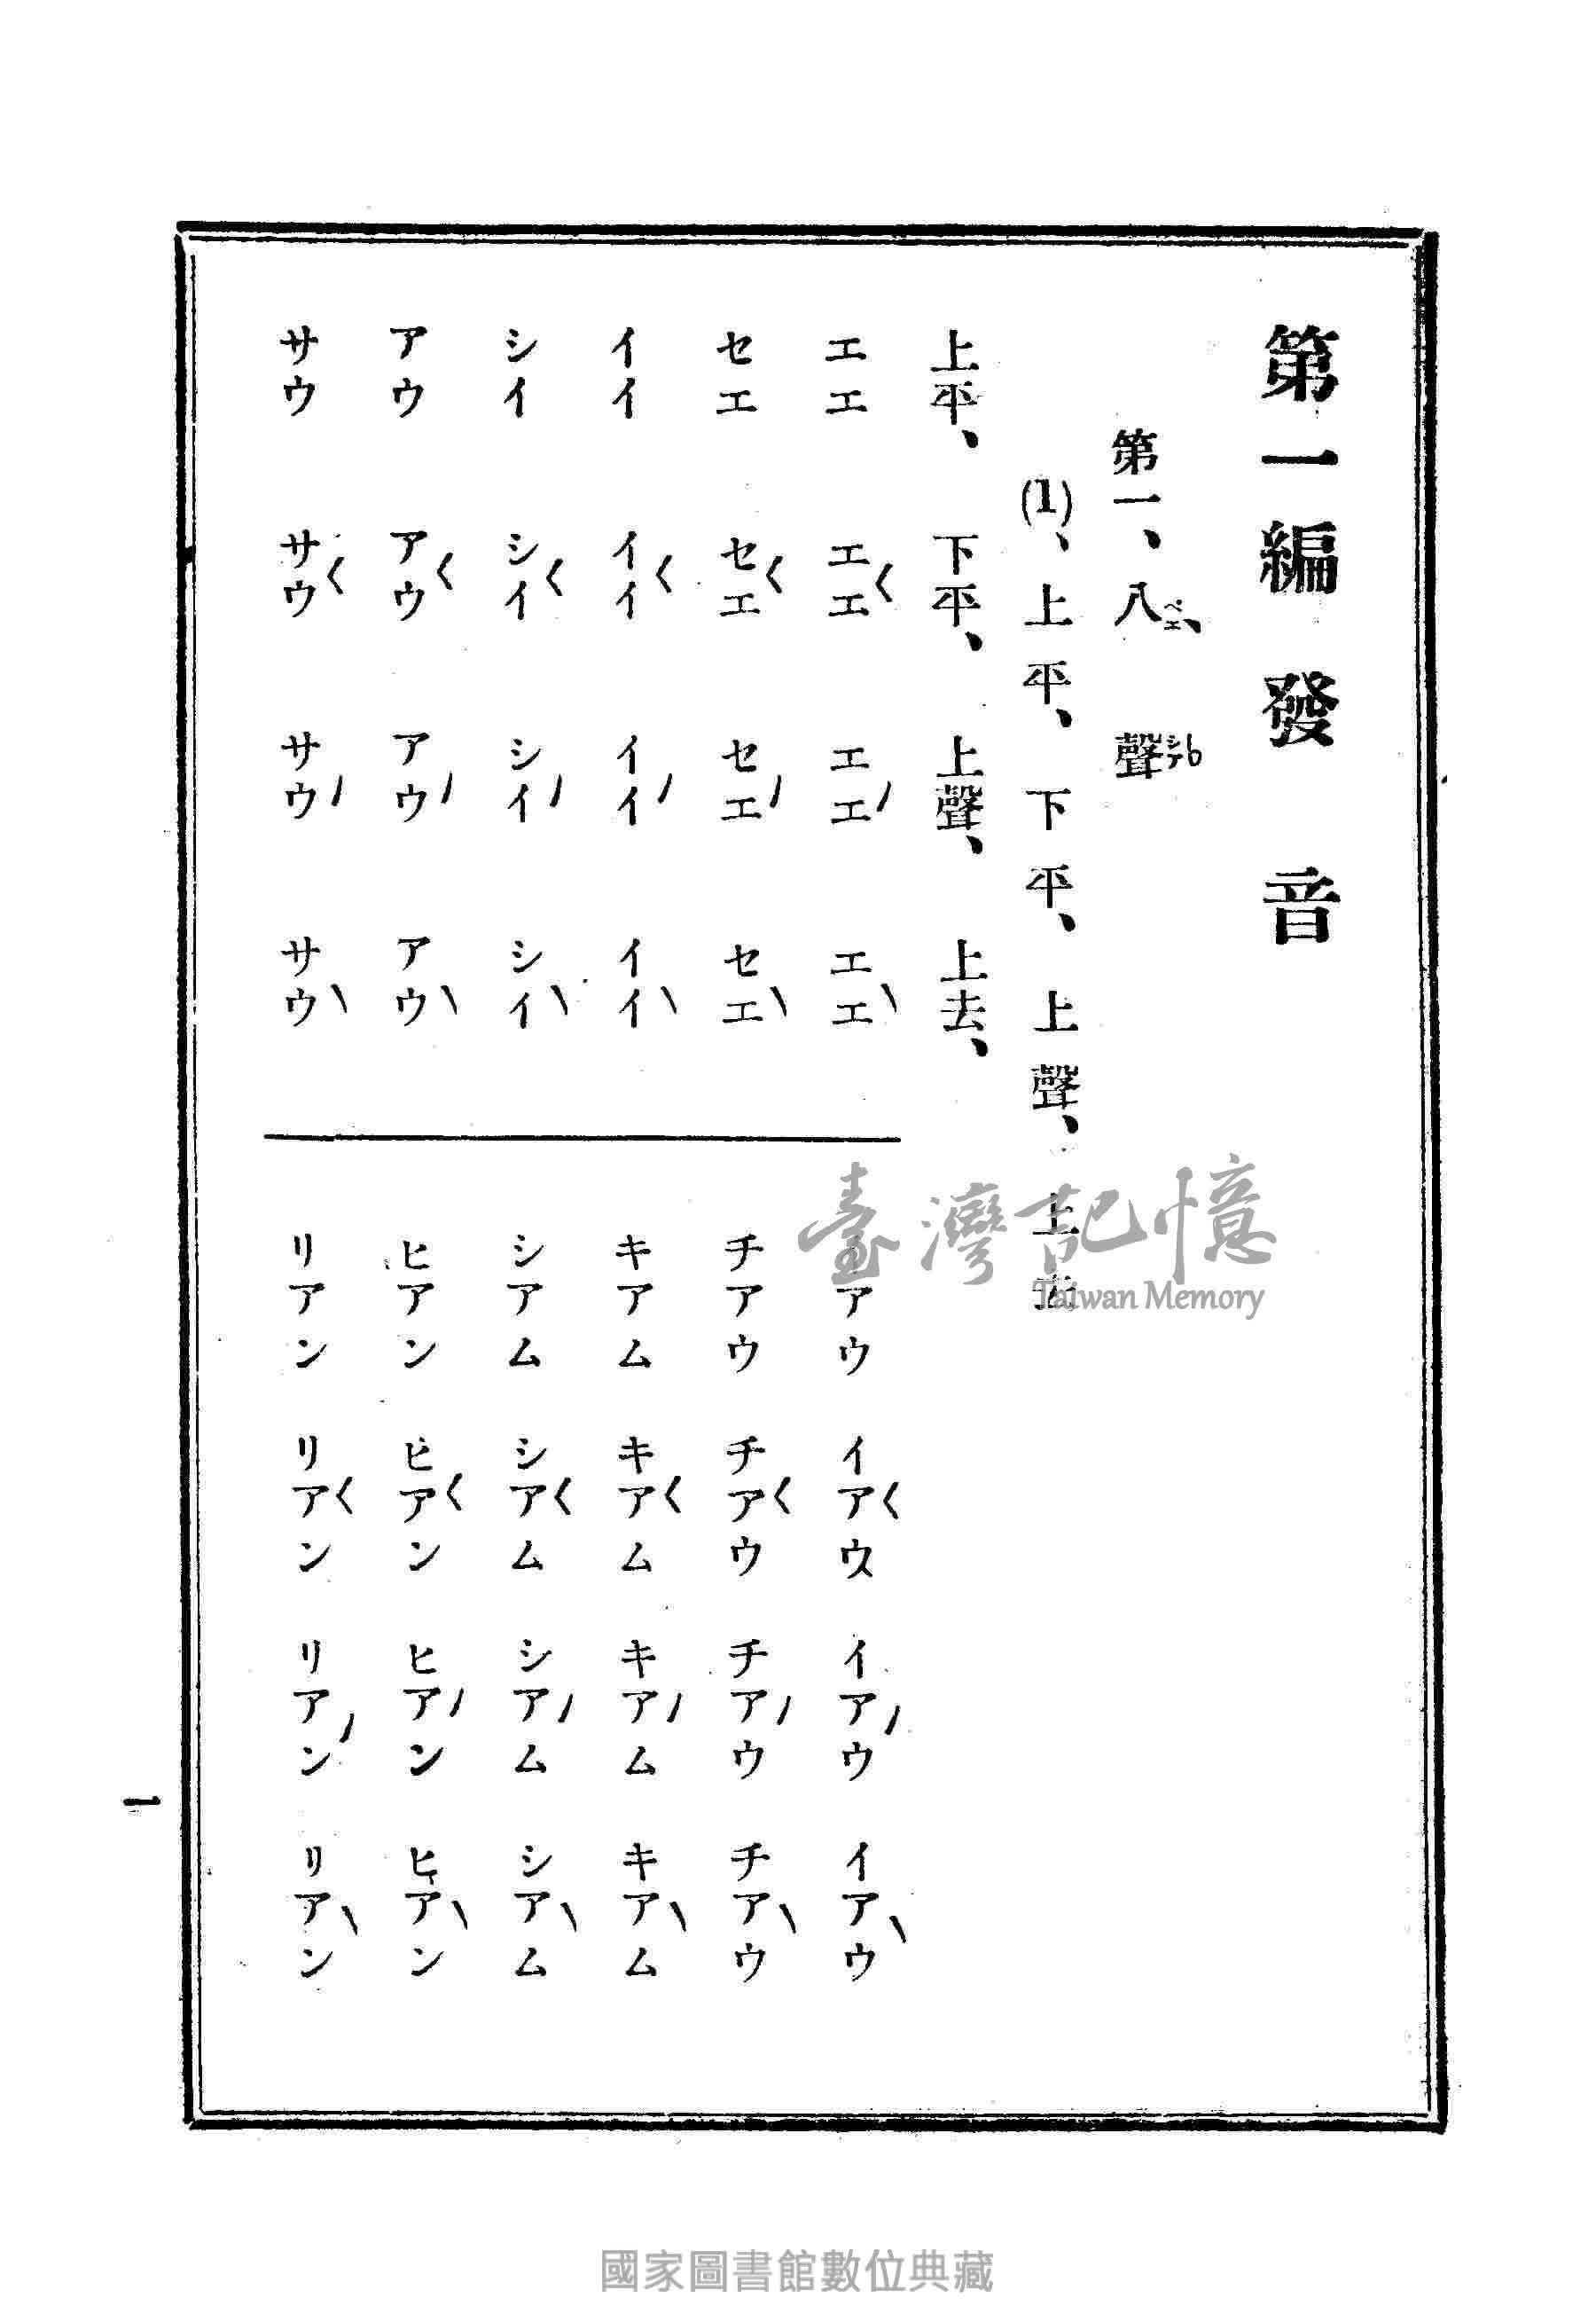 第一編 發音
第一、八ペエ、聲シァ
(1)、上平、下平、上聲、上去
上平、 下平、 上聲、 上去、
エエ エエ〱 エエノ エエ\
セエ セエ〱 セエノ セエ\
イイ イイ〱 イイノ イイ\
シイ シイ〱 シイノ シイ\
アウ アウ〱 アウノ アウ\
サウ サウ〱 サウノ サウ\
イアウ イアウ〱 イアウノ イアウ\
チアウ チアウ〱 チアウノ チアウ\
キアム キアム〱 キアムノ キアム\
シアム シアム〱 シアムノ シアム\
ヒアン ヒアン〱 ヒアンノ ヒアン\
リアン リアン〱 リアンノ リアン\
一
臺灣記憶
Taiwan Memory
國家圖書館數位典藏